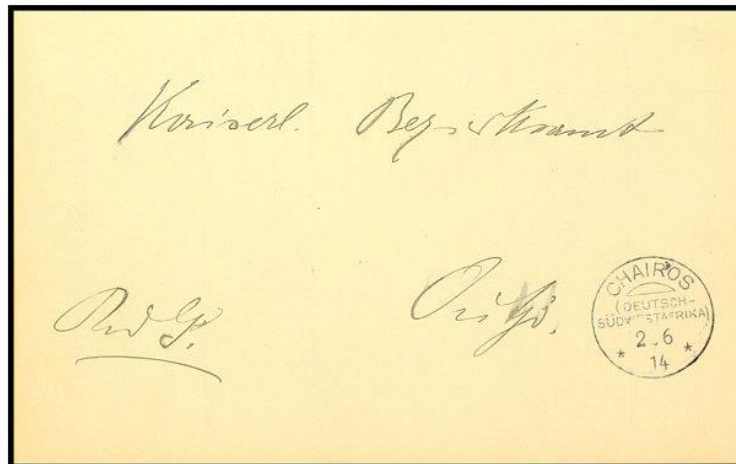 Kaiserl. Bezirksamt
Outjo.
CHAIROS
(DEUTSCH-
SÜDWESTAFRIKA)
2.6
14